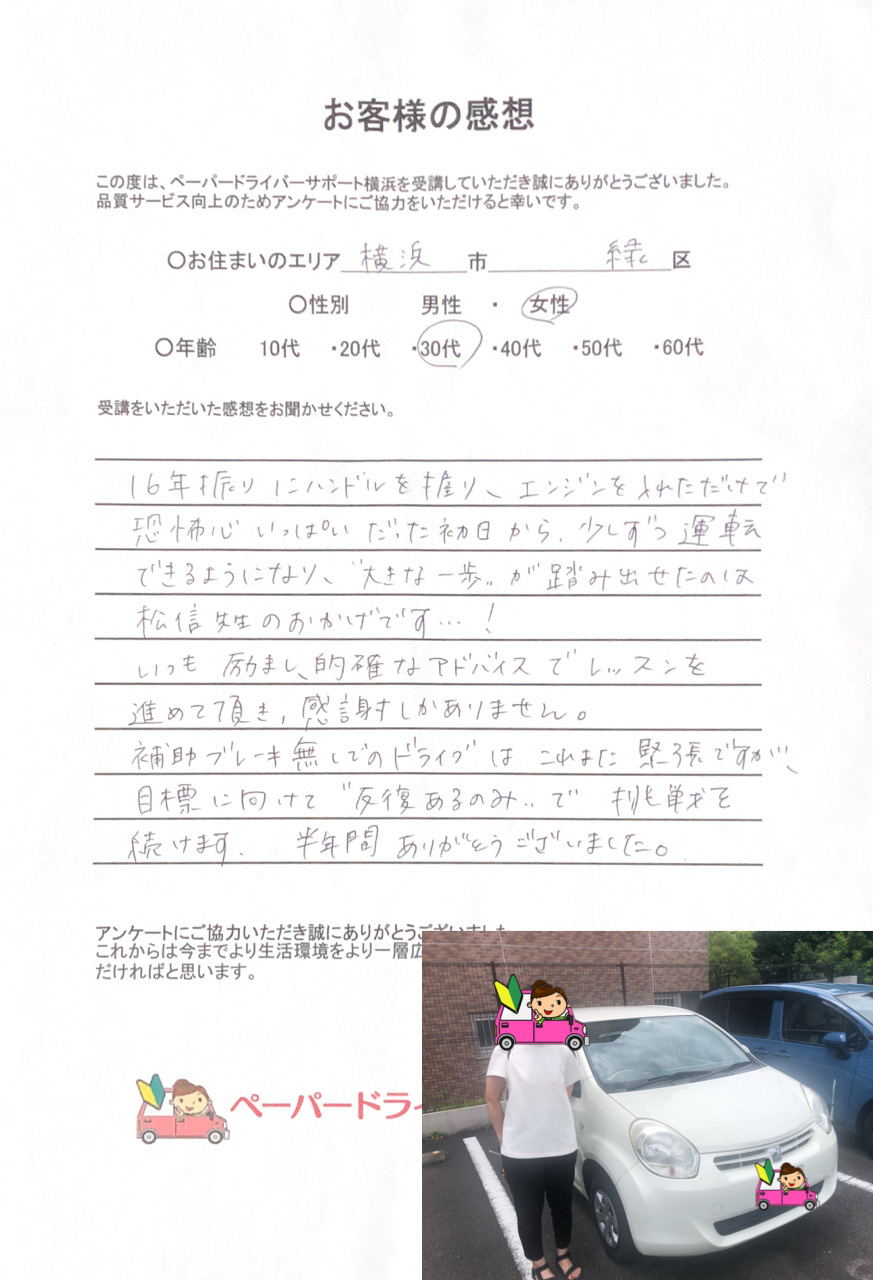 お客様の感想
この度は、ペーパードライバーサポート横浜を受講していただき誠にありがとうございました。
品質サービス向上のためアンケートにご協力をいただけると幸いです。
〇お住まいのエリア 横浜 市 緑 区
〇性別 男性 ・ 女性
〇年齢 10代 ・20代 ・30代 ・40代 ・50代 ・60代
受講をいただいた感想をお聞かせください。
16年振りにハンドルを握り、エンジンを入れただけで
恐怖心いっぱいだった初日から、少しずつ運転
できるようになり、"大きな一歩"が踏み出せたのは
松信先生のおかげです…!
いつも励まし、的確なアドバイスでレッスンを
進めて頂き、感謝しかありません。
補助ブレーキ無しでのドライブはこれまた緊張ですが、
目標に向けて"反復あるのみ"で挑戦を
続けます。半年間ありがとうございました。
アンケートにご協力いただき誠にありがとうございました
これからは今までより生活環境をより一層広
だければと思います。
ペーパードライ